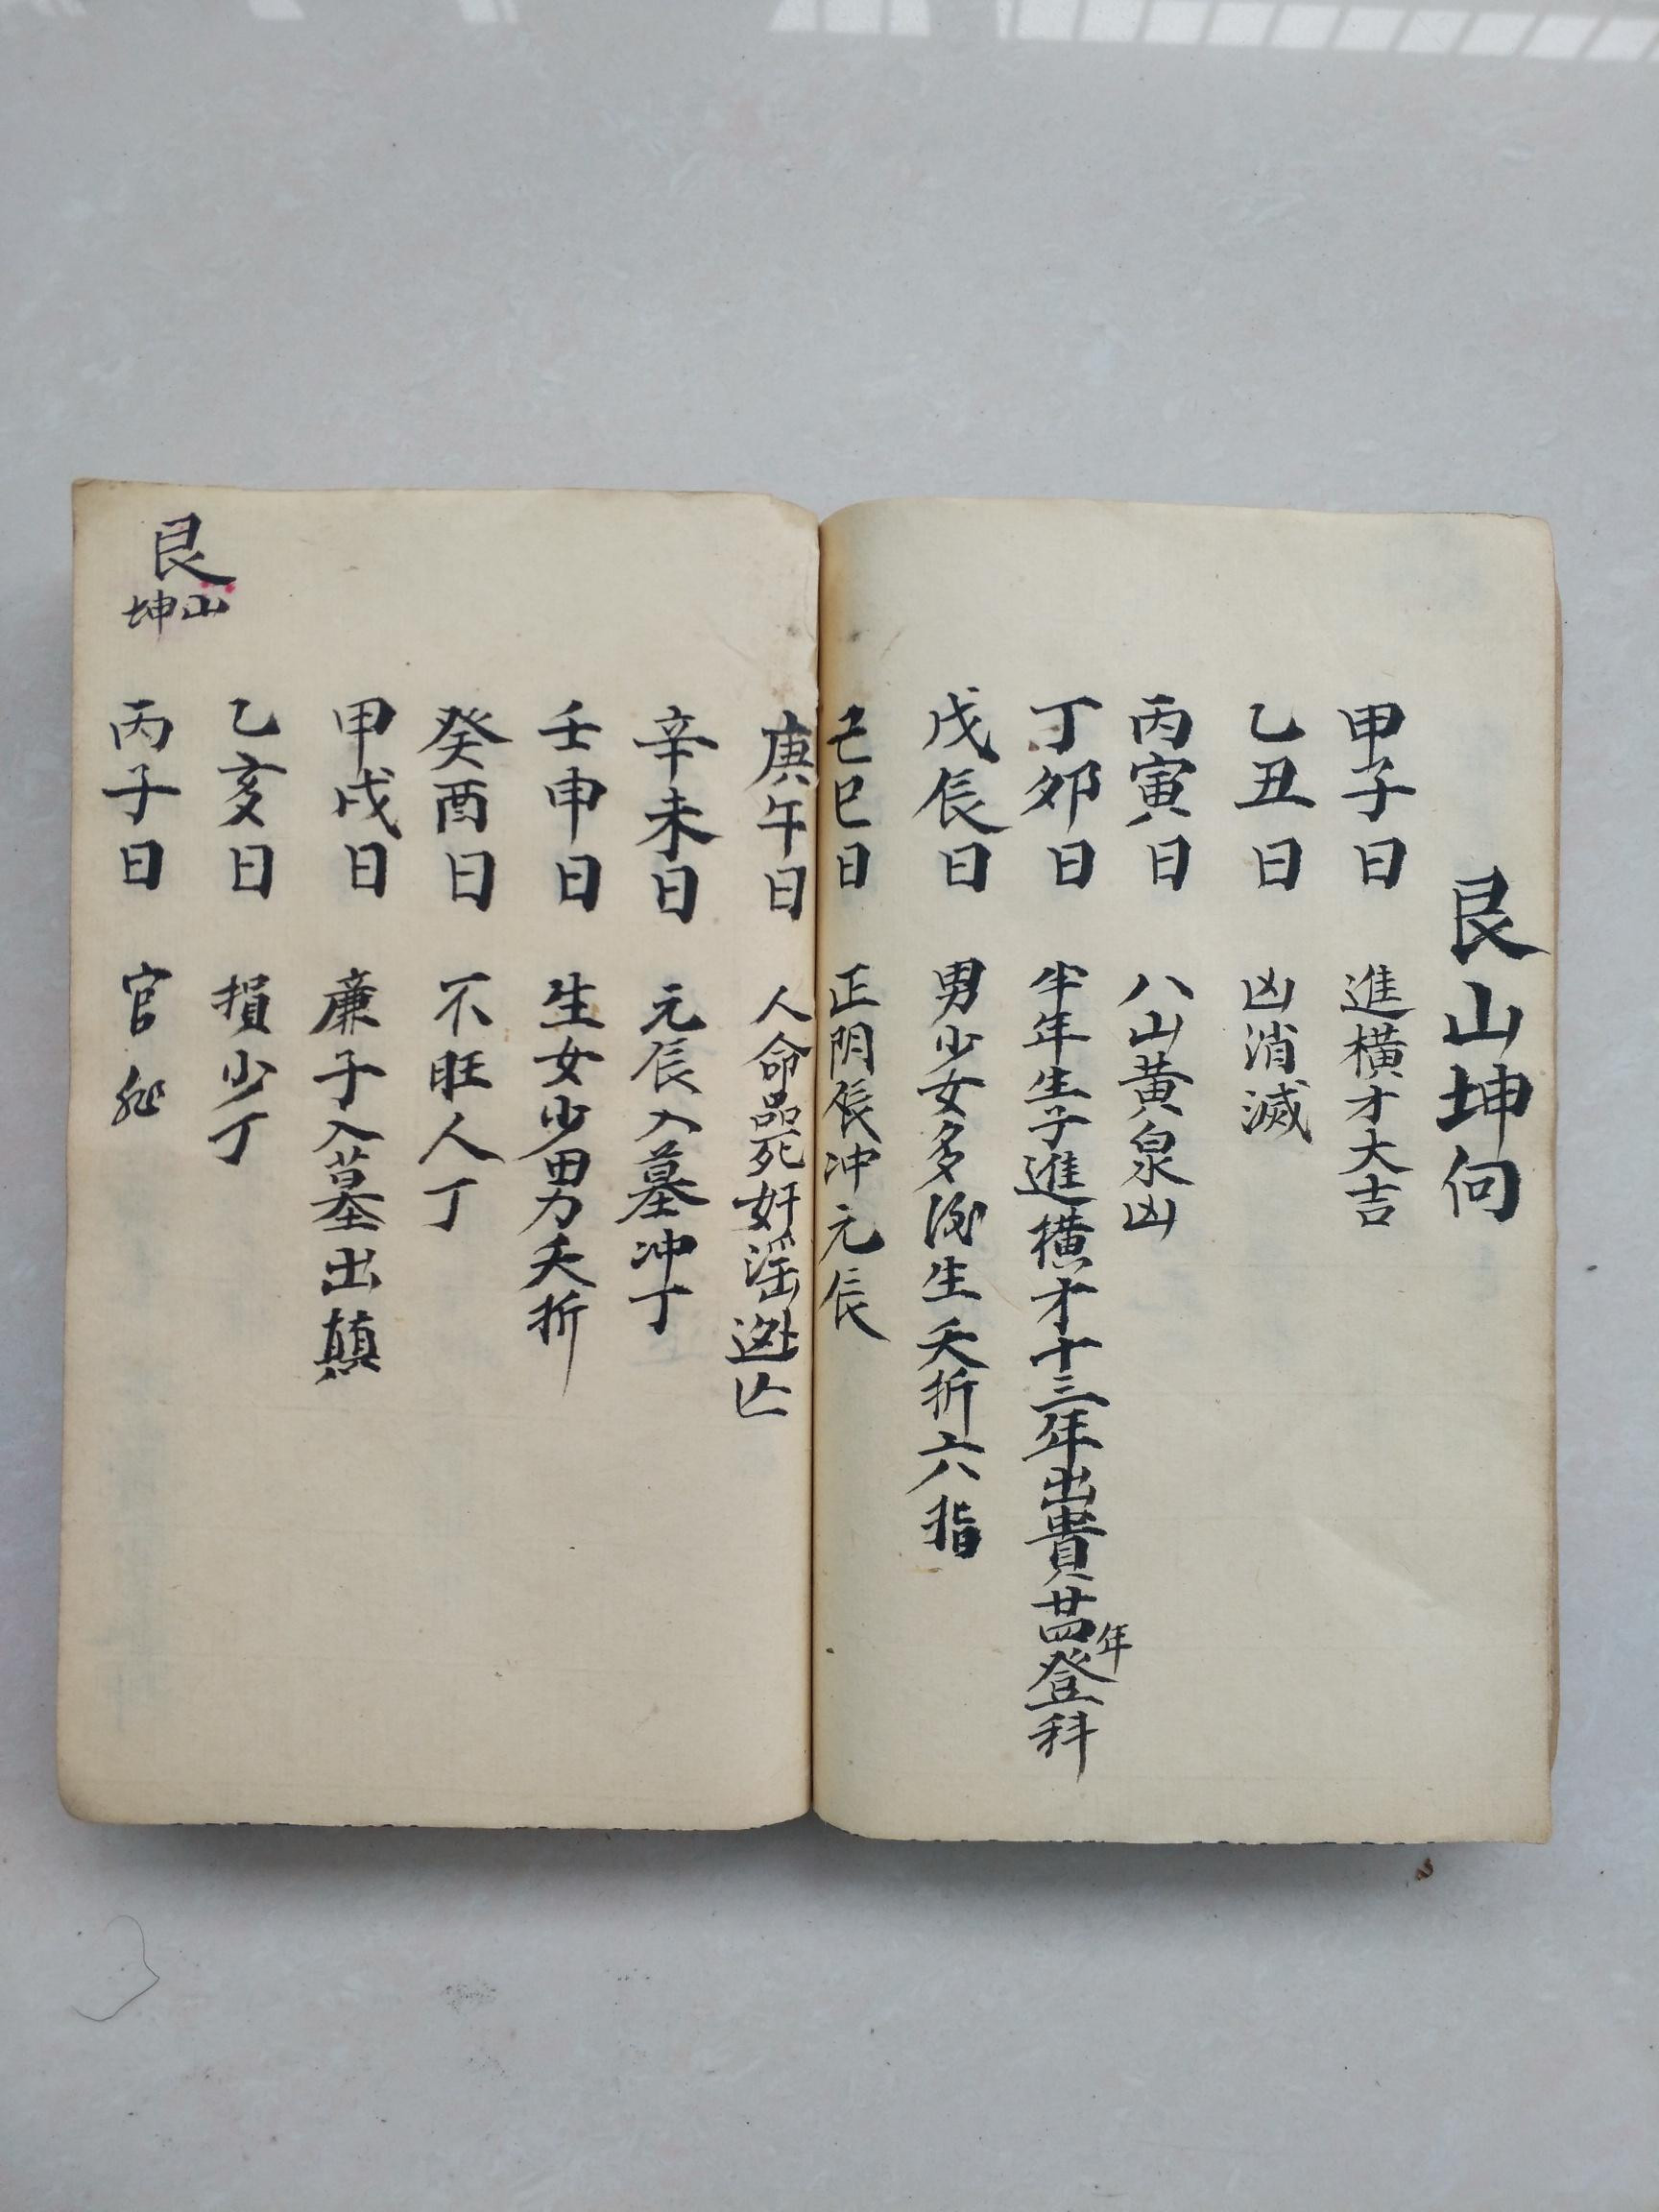 艮山坤向
甲子日 進橫才大吉
乙丑日 凶消滅
丙寅日 八山黄泉凶
丁卯日 半年生子進橫才十三年出貴廿四年登科
戊辰日 男少女多後生夭折六指
己巳日 正阴辰冲元辰
庚午日 人命 奸淫逃亡
辛未日 元辰入墓冲丁
壬申日 生女少男夭折
癸酉日 不旺人丁
甲戌日 廉子入墓出顛
乙亥日 損少丁
丙子日 官非
艮山
坤